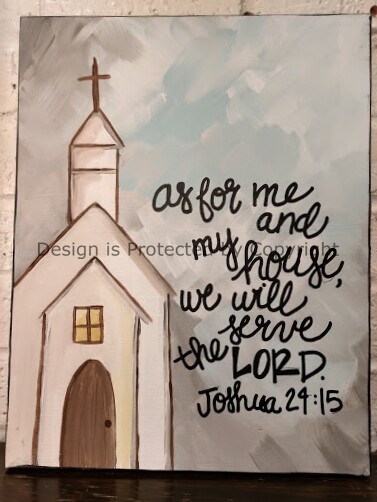 as for me
and
my house,
we will
serve
the LORD.
Joshua 24:15
Design is Protected by Copyright